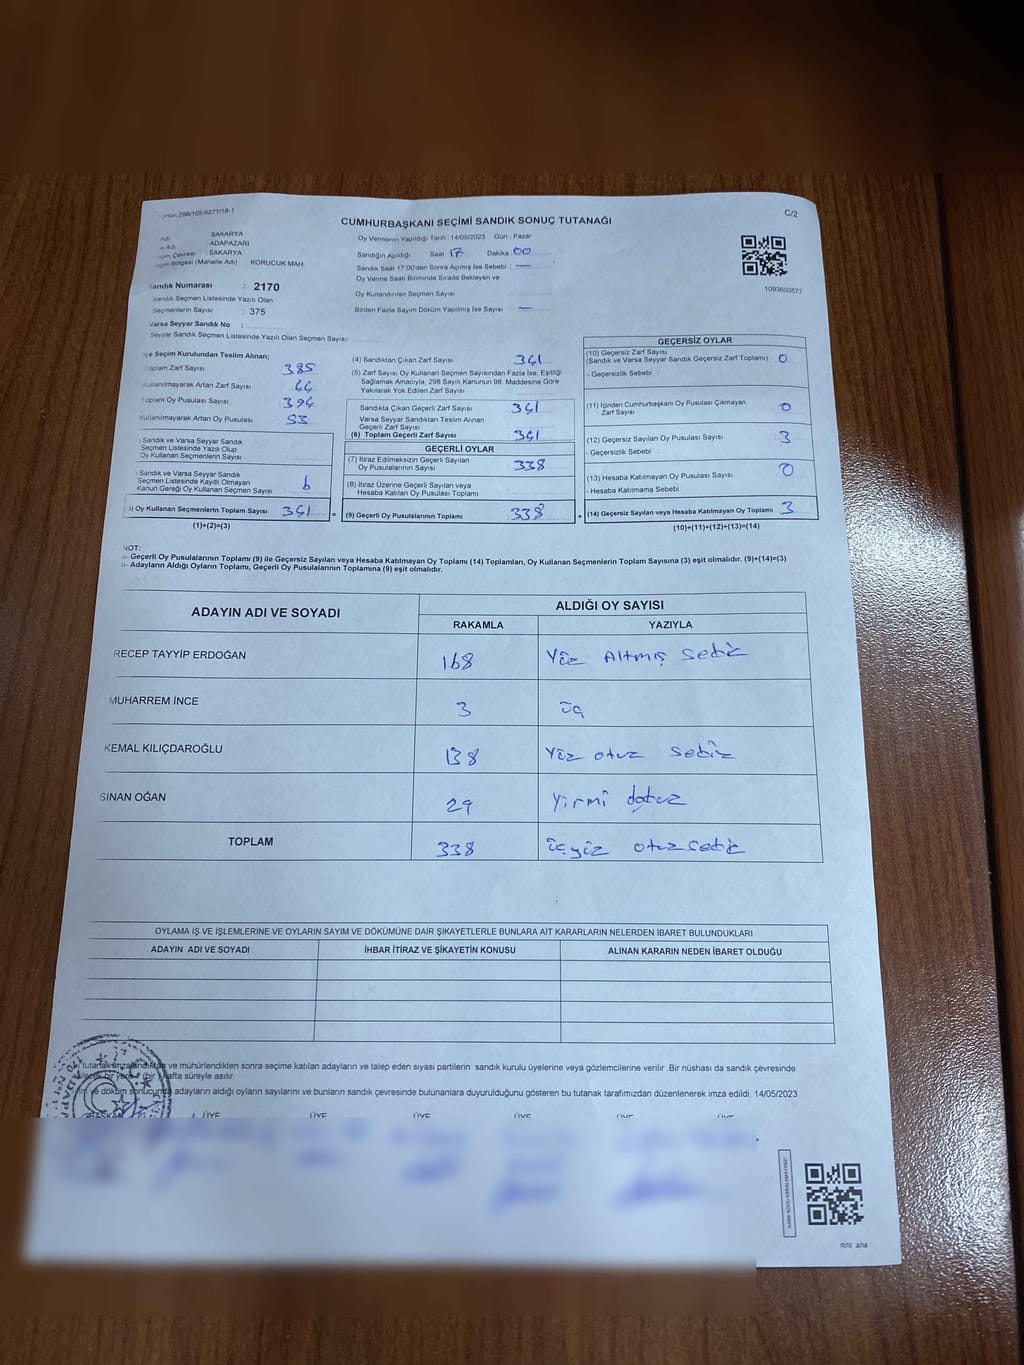 CUMHURBAŞKANI SEÇİMİ SANDIK SONUÇ TUTANAĞI
C/2
SAKARYA
ADAPAZARI
: SAKARYA
Bölgesi (Mahalle Adı) KORUCUK MAH.
Sandık Numarası : 2170
Sandık Seçmen Listesinde Yazılı Olan
Seçmenlerin Sayısı : 375
Varsa Seyyar Sandık No :
Seyyar Sandık Seçmen Listesinde Yazılı Olan Seçmen Sayısı :
Oy Vermenin Yapıldığı Tarih : 14/05/2023 Gün : Pazar
Sandığın Açıldığı Saat 17 Dakika 00
Sandık Saat 17:00'den Sonra Açılmış İse Sebebi : —
Oy Verme Saati Bitiminde Sırada Bekleyen ve
Oy Kullandırılan Seçmen Sayısı
Birden Fazla Sayım Döküm Yapılmış İse Sayısı : —
1093603577
Seçim Kurulundan Teslim Alınan;
Toplam Zarf Sayısı 385
Kullanılmayarak Artan Zarf Sayısı 44
Toplam Oy Pusulası Sayısı 394
Kullanılmayarak Artan Oy Pusulası 53
Sandık ve Varsa Seyyar Sandık
Seçmen Listesinde Yazılı Olup
Oy Kullanan Seçmenlerin Sayısı
Sandık ve Varsa Seyyar Sandık
Seçmen Listesinde Kayıtlı Olmayan
Kanun Gereği Oy Kullanan Seçmen Sayısı 6
Oy Kullanan Seçmenlerin Toplam Sayısı 341 =
(1)+(2)=(3)
(4) Sandıktan Çıkan Zarf Sayısı 341
(5) Zarf Sayısı Oy Kullanan Seçmen Sayısından Fazla İse, Eşitliği
Sağlamak Amacıyla, 298 Sayılı Kanunun 98. Maddesine Göre
Yakılarak Yok Edilen Zarf Sayısı
Sandıkta Çıkan Geçerli Zarf Sayısı 341
Varsa Seyyar Sandıktan Teslim Alınan
Geçerli Zarf Sayısı
(6) Toplam Geçerli Zarf Sayısı 341
GEÇERLİ OYLAR
(7) İtiraz Edilmeksizin Geçerli Sayılan
Oy Pusulalarının Sayısı 338
(8) İtiraz Üzerine Geçerli Sayılan veya
Hesaba Katılan Oy Pusulası Toplamı
(9) Geçerli Oy Pusulalarının Toplamı 338 +
GEÇERSİZ OYLAR
(10) Geçersiz Zarf Sayısı
(Sandık ve Varsa Seyyar Sandık Geçersiz Zarf Toplamı) 0
- Geçersizlik Sebebi
(11) İçinden Cumhurbaşkanı Oy Pusulası Çıkmayan
Zarf Sayısı 0
(12) Geçersiz Sayılan Oy Pusulası Sayısı 3
- Geçersizlik Sebebi
(13) Hesaba Katılmayan Oy Pusulası Sayısı 0
- Hesaba Katılmama Sebebi
(14) Geçersiz Sayılan veya Hesaba Katılmayan Oy Toplamı 3
(10)+(11)+(12)+(13)=(14)
NOT:
- Geçerli Oy Pusulalarının Toplamı (9) ile Geçersiz Sayılan veya Hesaba Katılmayan Oy Toplamı (14) Toplamları, Oy Kullanan Seçmenlerin Toplam Sayısına (3) eşit olmalıdır. (9)+(14)=(3)
- Adayların Aldığı Oyların Toplamı, Geçerli Oy Pusulalarının Toplamına (9) eşit olmalıdır.
ADAYIN ADI VE SOYADI
ALDIĞI OY SAYISI
RAKAMLA YAZIYLA
RECEP TAYYİP ERDOĞAN 168 Yüz Altmış Sekiz
MUHARREM İNCE 3 üç
KEMAL KILIÇDAROĞLU 138 Yüz otuz Sekiz
SİNAN OĞAN 29 Yirmi dokuz
TOPLAM 338 üçyüz otuzsekiz
OYLAMA İŞ VE İŞLEMLERİNE VE OYLARIN SAYIM VE DÖKÜMÜNE DAİR ŞİKAYETLERLE BUNLARA AİT KARARLARIN NELERDEN İBARET BULUNDUKLARI
ADAYIN ADI VE SOYADI İHBAR İTİRAZ VE ŞİKAYETİN KONUSU ALINAN KARARIN NEDEN İBARET OLDUĞU
ve mühürlendikten sonra seçime katılan adayların ve talep eden siyasi partilerin sandık kurulu üyelerine veya gözlemcilerine verilir. Bir nüshası da sandık çevresinde
hafta süreyle asılır.
ve döküm sonucunda adayların aldığı oyların sayılarını ve bunların sandık çevresinde bulunanlara duyurulduğunu gösteren bu tutanak tarafımızdan düzenlenerek imza edildi. 14/05/2023
BAŞKAN ÜYE ÜYE ÜYE ÜYE ÜYE ÜYE